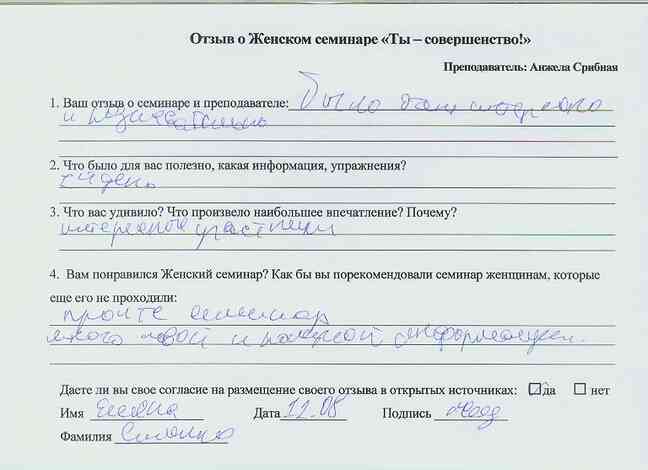 Отзыв о Женском семинаре «Ты – совершенство!»
Преподаватель: Анжела Срибная
1. Ваш отзыв о семинаре и преподавателе: Было
и познавательно
2. Что было для вас полезно, какая информация, упражнения?
день
3. Что вас удивило? Что произвело наибольшее впечатление? Почему?
интересные участницы
4. Вам понравился Женский семинар? Как бы вы порекомендовали семинар женщинам, которые
еще его не проходили:
пройте семинар
много новой и полезной информации.
Даете ли вы свое согласие на размещение своего отзыва в открытых источниках: да нет
Имя Дата 12.08 Подпись
Фамилия